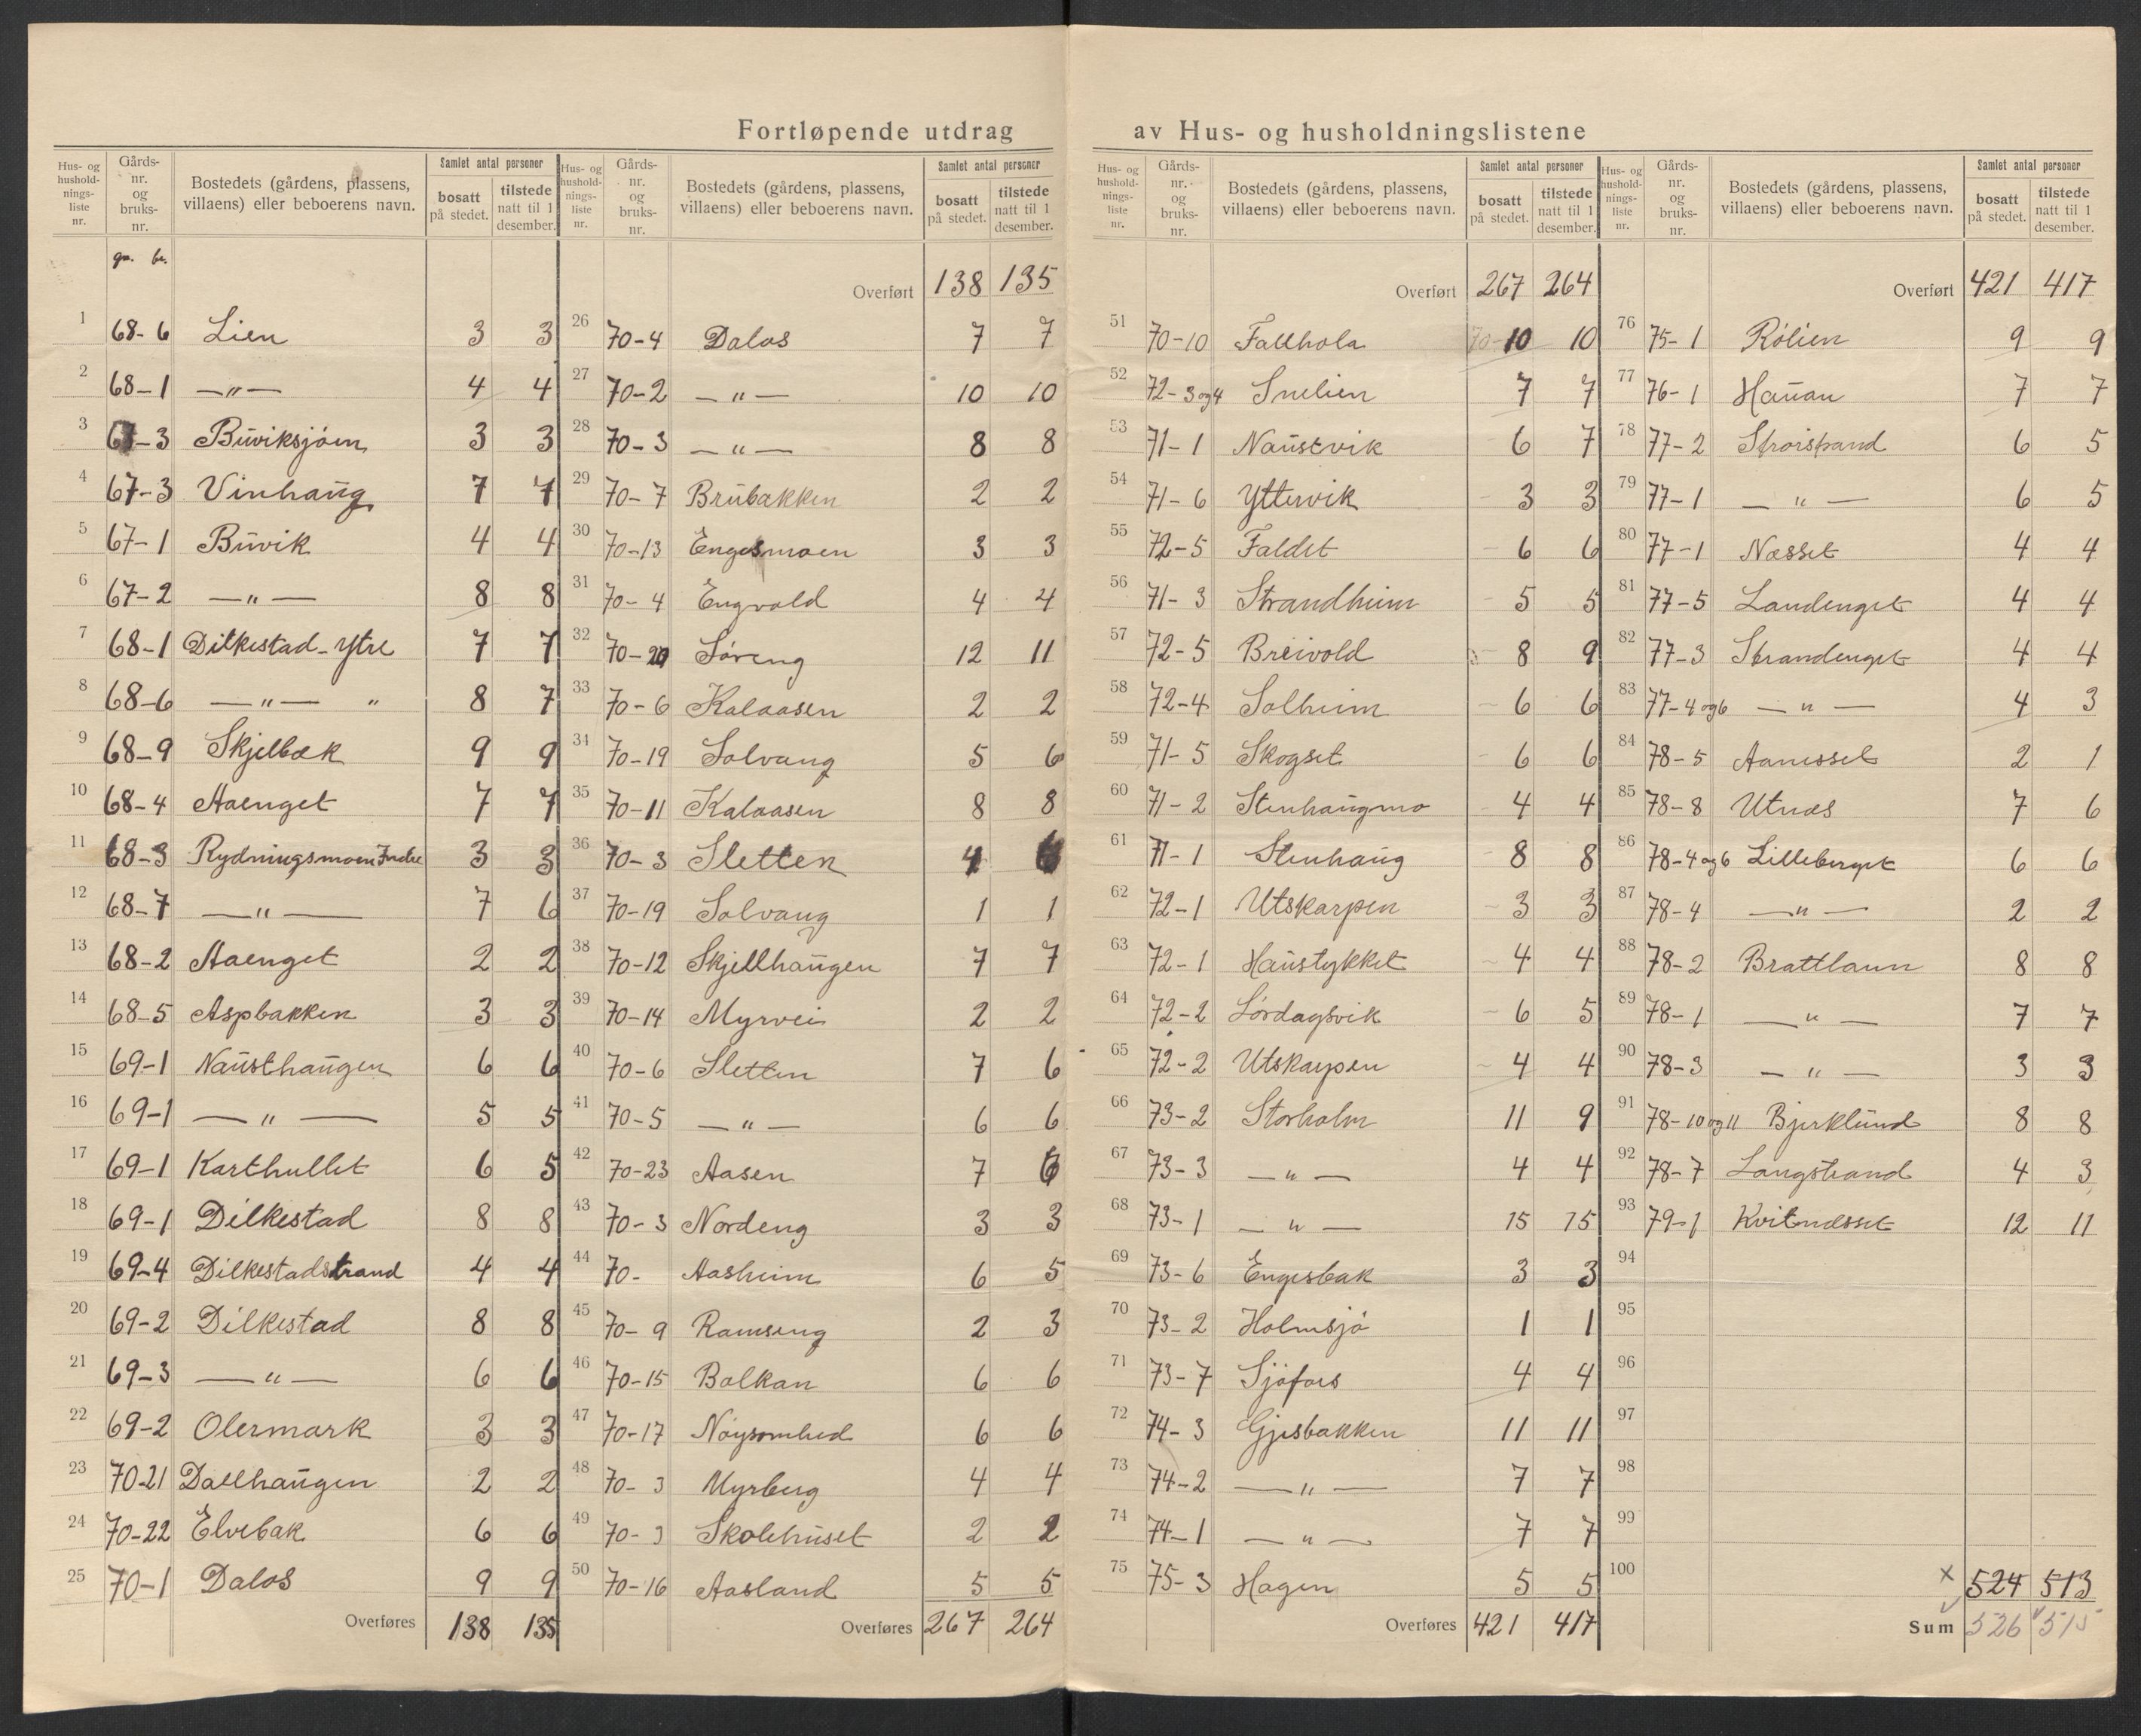 Fortløpende utdrag av Hus- og husholdningslistene
Hus- og hushold-nings-liste nr. Gårds-nr. og bruks-nr. Bostedets (gårdens, plassens, villaens) eller beboerens navn. Samlet antal personer bosatt på stedet. tilstede natt til 1 desember.
gn. br.
1 68-6 Lien 3 3
2 68-1 —„— 4 4
3 67-3 Buviksjøen 3 3
4 67-3 Vinhaug 7 7
5 67-1 Buvik 4 4
6 67-2 —„— 8 8
7 68-1 Dilkestad-Ytre 7 7
8 68-6 —„— „ 8 7
9 68-9 Skjelbæk 9 9
10 68-4 Aaenget 7 7
11 68-3 Rydningsmoen Indre 3 3
12 68-7 —„— 7 6
13 68-2 Aaenget 2 2
14 68-5 Aspbakken 3 3
15 69-1 Nausthaugen 6 6
16 69-1 —„— 5 5
17 69-1 Karthullet 6 5
18 69-1 Dilkestad 8 8
19 69-4 Dilkestadstrand 4 4
20 69-2 Dilkestad 8 8
21 69-3 —„— 6 6
22 69-2 Olermark 3 3
23 70-21 Dallhaugen 2 2
24 70-22 Elvebak 6 6
25 70-1 Dalos 9 9
Overføres 138 135
Hus- og hushold-nings-liste nr. Gårds-nr. og bruks-nr. Bostedets (gårdens, plassens, villaens) eller beboerens navn. Samlet antal personer bosatt på stedet. tilstede natt til 1 desember.
Overført 138 135
26 70-4 Dalos 7 7
27 70-2 —„— 10 10
28 70-3 —„— 8 8
29 70-7 Brubakken 2 2
30 70-13 Engesmoen 3 3
31 70-4 Engvold 4 4
32 70-20 Søreng 12 11
33 70-6 Kalaasen 2 2
34 70-19 Solvang 5 6
35 70-11 Kalaasen 8 8
36 70-3 Sletten 4 6
37 70-19 Solvang 1 1
38 70-12 Skjellhaugen 7 7
39 70-14 Myrvei 2 2
40 70-6 Sletten 7 6
41 70-5 —„— 6 6
42 70-23 Aasen 7 6
43 70-3 Nordeng 3 3
44 70- Aasheim 6 5
45 70-9 Ramseng 2 3
46 70-15 Balkan 6 6
47 70-17 Nøysomhed 6 6
48 70-3 Myrberg 4 4
49 70-3 Skolehuset 2 2
50 70-16 Aasland 5 5
Overføres 267 264
Hus- og hushold-nings-liste nr. Gårds-nr. og bruks-nr. Bostedets (gårdens, plassens, villaens) eller beboerens navn. Samlet antal personer bosatt på stedet. tilstede natt til 1 desember.
Overført 267 264
51 70-10 Fallhola 10 10
52 72-3 og 4 Snelien 7 7
53 71-1 Naustvik 6 7
54 71-6 Yttervik 3 3
55 72-5 Faldet 6 6
56 71-3 Strandheim 5 5
57 72-5 Breivold 8 9
58 72-4 Solheim 6 6
59 71-5 Skogset 6 6
60 71-2 Stenhaugmo 4 4
61 71-1 Stenhaug 8 8
62 72-1 Utskarpen 3 3
63 72-1 Haustykket 4 4
64 72-2 Lørdagsvik 6 5
65 72-2 Utskarpen 4 4
66 73-2 Storholm 11 9
67 73-3 —„— 4 4
68 73-1 —„— 15 15
69 73-6 Engesbak 3 3
70 73-2 Holmsjø 1 1
71 73-7 Sjøfors 4 4
72 74-3 Gjesbakken 11 11
73 74-2 —„— 7 7
74 74-1 —„— 7 7
75 75-3 Hagen 5 5
Overføres 421 417
Hus- og hushold-nings-liste nr. Gårds-nr. og bruks-nr. Bostedets (gårdens, plassens, villaens) eller beboerens navn. Samlet antal personer bosatt på stedet. tilstede natt til 1 desember.
Overført 421 417
76 75-1 Rølien 9 9
77 76-1 Hauan 7 7
78 77-2 Straistrand 6 5
79 77-1 —„— 6 5
80 77-1 Næsset 4 4
81 77-5 Landenget 4 4
82 77-3 Strandenget 4 4
83 77-4 og 6 —„— 4 3
84 78-5 Aanesset 2 1
85 78-8 Utnæs 7 6
86 78-4 og 6 Lilleberget 6 6
87 78-4 —„— 2 2
88 78-2 Brattlann 8 8
89 78-1 —„— 7 7
90 78-3 —„— 3 3
91 78-10 og 11 Bjerklund 8 8
92 78-7 Langstrand 4 3
93 79-1 Kvitnæsset 12 11
94
95
96
97
98
99
100 x 524 513
Sum 526 515